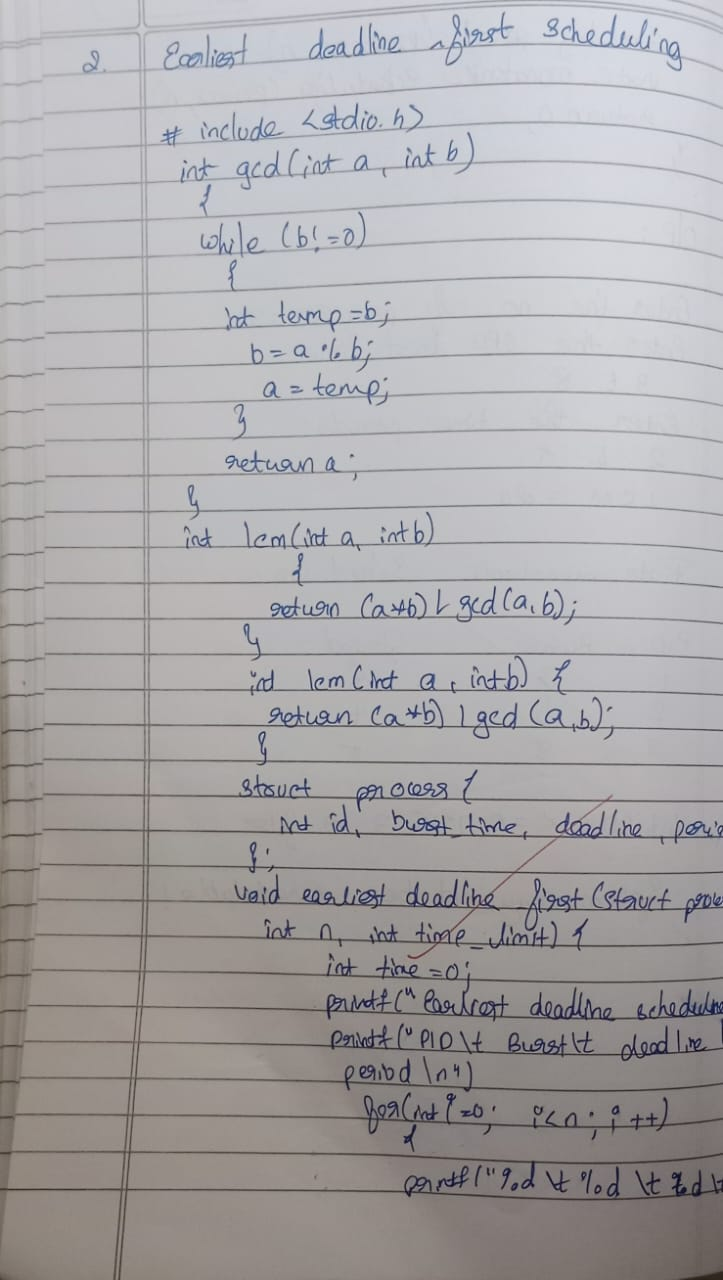 2. Earliest deadline first scheduling
# include <stdio.h>
int gcd(int a, int b)
{
while (b!=0)
{
int temp=b;
b=a % b;
a=temp;
}
return a;
}
int lcm(int a, int b)
{
return (a*b) / gcd(a,b);
}
int lcm(int a, int b) {
return (a*b) / gcd (a,b);
}
struct process {
int id, burst_time, deadline, perio
};
void earliest deadline_first (struct proce
int n, int time_limit) {
int time=0;
printf(" Earliest deadline scheduling
printf(" PID \t Burst \t deadline \
period \n")
for(int i=0; i<n; i++)
{
printf("%d \t %d \t %d \t